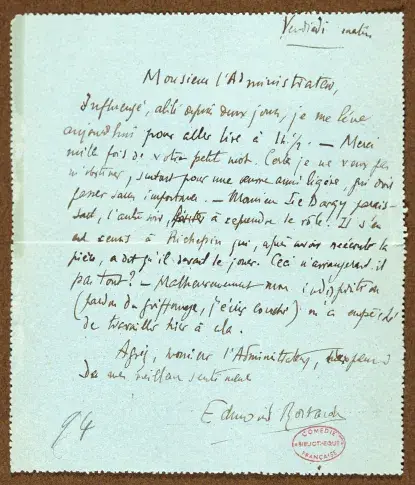 Vendredi matin
Monsieur l'Administrateur,
Influenzé, alité depuis deux jours, je me lève
aujourd'hui pour aller lire à 1h 1/2. — Merci
mille fois de votre petit mot. Certes je ne veux pas
m'obstiner, surtout pour une œuvre aussi légère, qui doit
passer sans importance. — Monsieur Le Bargy paraissait,
l'autre soir, à reprendre le rôle. Il s'en
est remis à Richepin qui, après avoir réécouté la
pièce, a dit qu'il devait le jouer. Ceci n'arrangerait-il
pas tout? — Malheureusement mon indisposition
(pardon du griffonnage, j'écris couché) m'a empêché
de travailler hier à cela.
Agréez, monsieur l'Administrateur,
de mes meilleurs sentiments
Edmond Rostand
94
COMÉDIE
BIBLIOTHÈQUE
FRANÇAISE